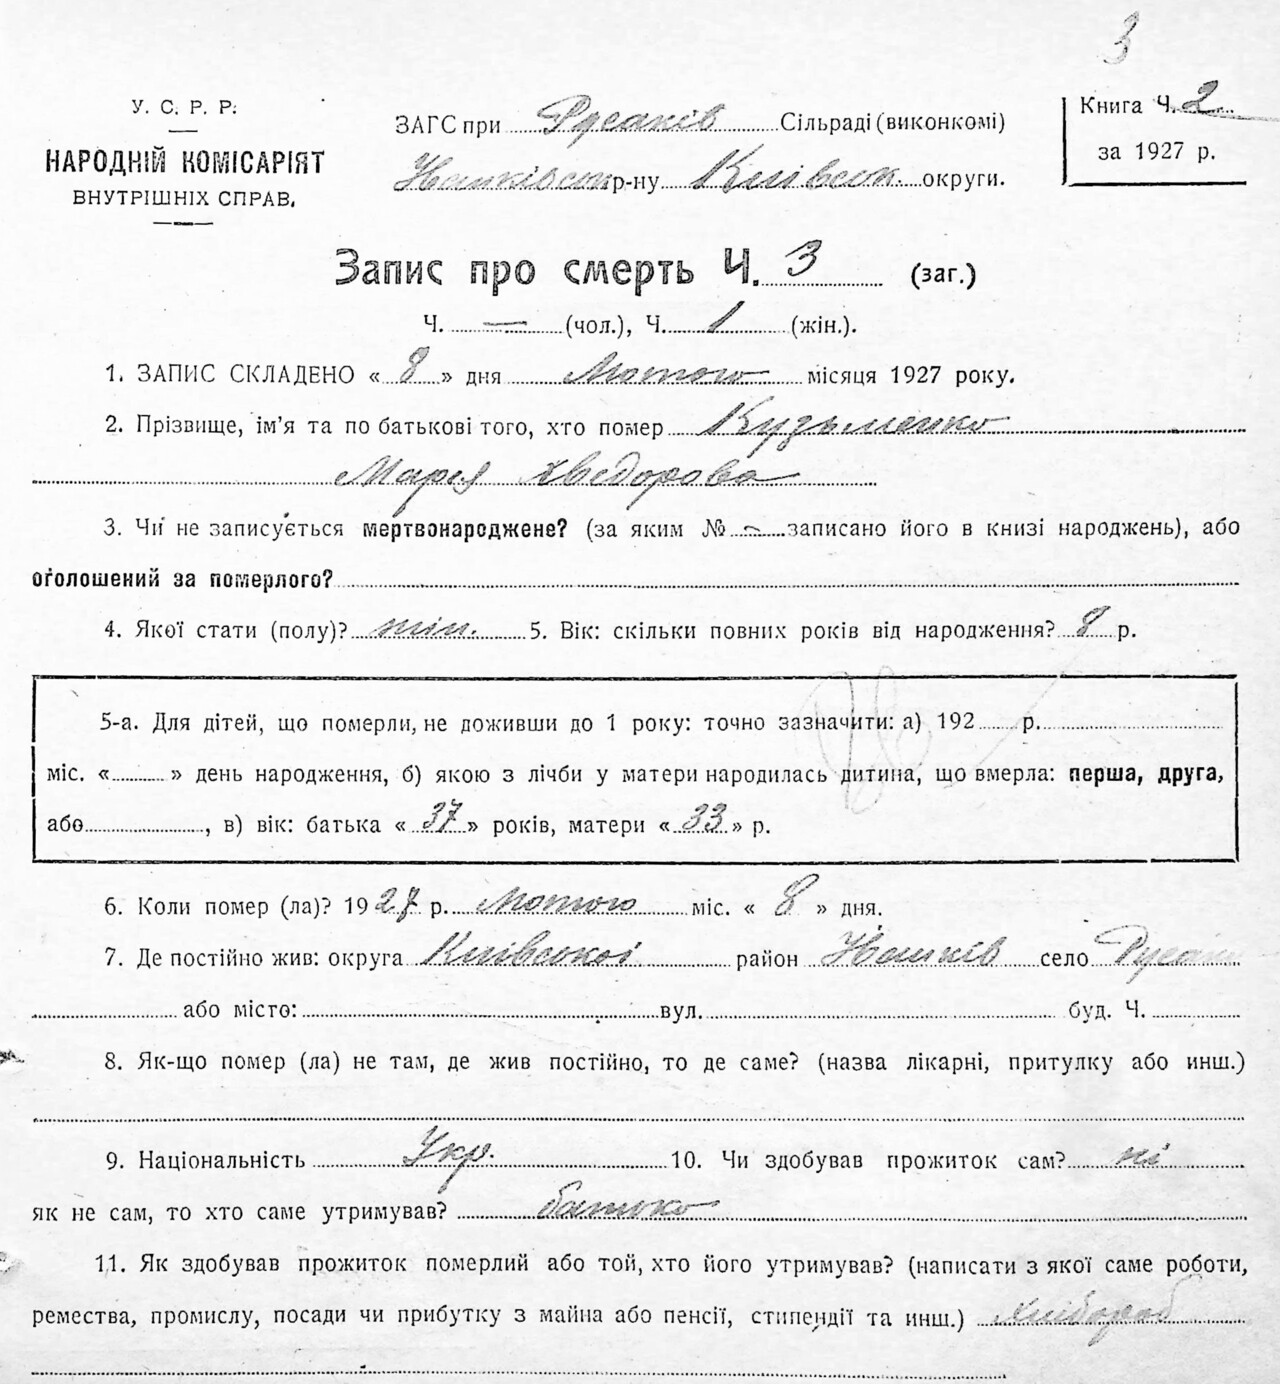 3
У. С. Р. Р.
НАРОДНІЙ КОМІСАРІЯТ
ВНУТРІШНІХ СПРАВ.
ЗАГС при Русаків Сільраді (виконкомі)
р-ну Київськ. округи.
Книга Ч. 2
за 1927 р.
Запис про смерть Ч. 3 (заг.)
Ч. — (чол.), Ч. 1 (жін.).
1. ЗАПИС СКЛАДЕНО « 8 » дня Лютого місяця 1927 року.
2. Прізвище, ім'я та по батькові того, хто помер Кузьменко
Мария Хведорова
3. Чи не записується мертвонароджене? (за яким № – записано його в книзі народжень), або
оголошений за померлого?
4. Якої стати (полу)? жін. 5. Вік: скільки повних років від народження? 8 р.
5-а. Для дітей, що померли, не доживши до 1 року: точно зазначити: а) 192 р.
міс. « » день народження, б) якою з лічби у матери народилась дитина, що вмерла: перша, друга,
або , в) вік: батька « 37 » років, матери « 33 » р.
6. Коли помер (ла)? 1927 р. Лютого міс. « 8 » дня.
7. Де постійно жив: округа Київської район село
або місто: вул. буд. Ч.
8. Як-що помер (ла) не там, де жив постійно, то де саме? (назва лікарні, притулку або инш.)
9. Національність Укр. 10. Чи здобував прожиток сам? ні
як не сам, то хто саме утримував? батько
11. Як здобував прожиток померлий або той, хто його утримував? (написати з якої саме роботи,
ремества, промислу, посади чи прибутку з майна або пенсії, стипендії та инш.) Хлібороб